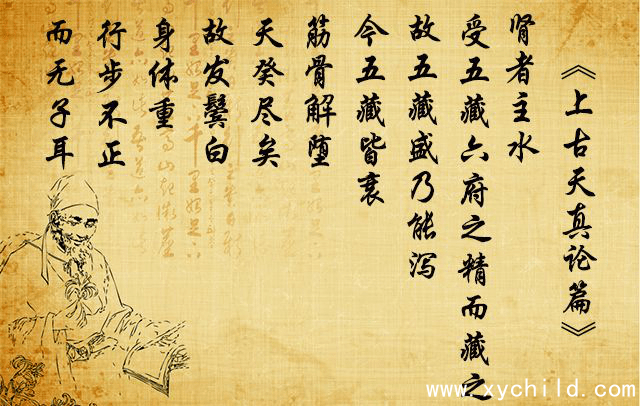 《上古天真论篇》
肾者主水
受五藏六府之精而藏之
故五藏盛乃能泻
今五藏皆衰
筋骨解堕
天癸尽矣
故发鬓白
身体重
行步不正
而无子耳
www.xychild.com